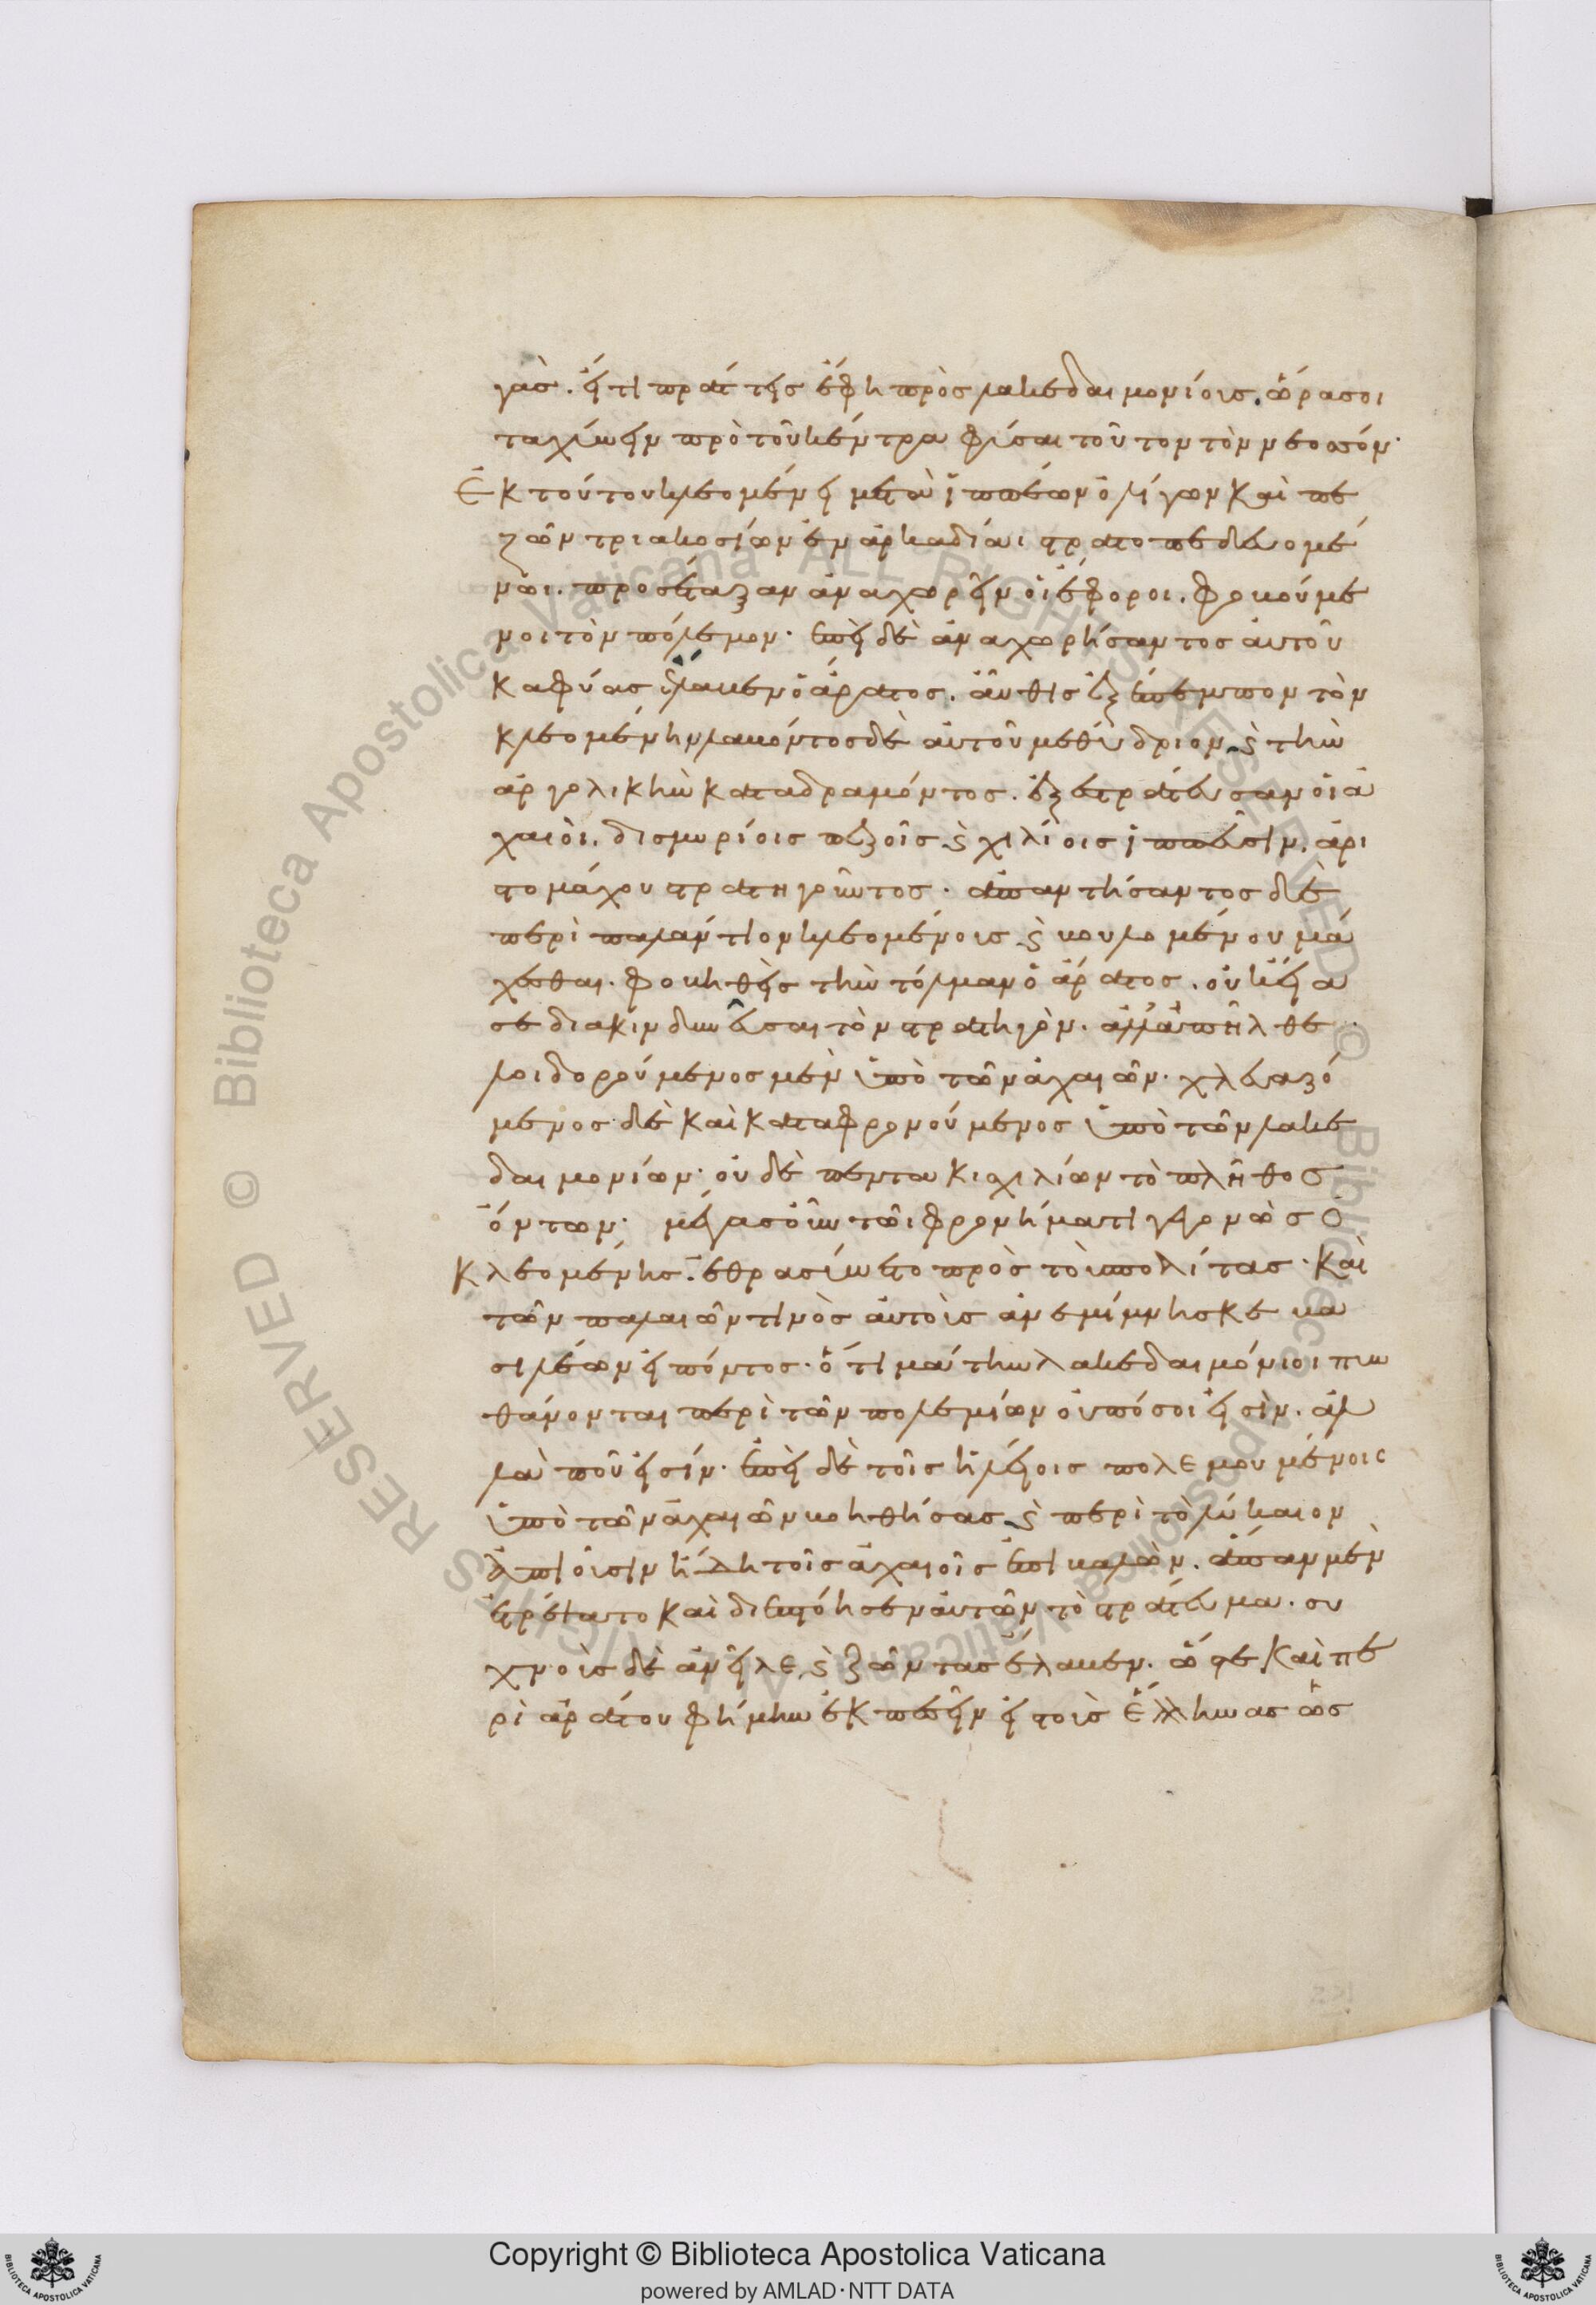 γας. εἴ τι πράττεις ἔφη πρὸς λακεδαιμονίοις, ὥρα σοι
ταχίων ἦν πρὸ τοῦ κέντρα φῦσαι τοῦτον τὸν νεοσσόν·
Ἐκ τούτου κλεομένει μετὰ ἱππέων ὀλίγων καὶ πε
ζῶν τριακοσίων ἐν ἀρκαδίαι στρατοπεδευομέ
νωι. προσέταξαν ἀναχωρεῖν οἱ ἔφοροι. φοβούμε
νοι τὸν πόλεμον· ἐπεὶ δὲ ἀναχωρήσαντος αὐτοῦ
καφύας ἔλαβεν ὁ ἄρατος. αὖθις ἐξέπεμπον τὸν
κλεομένην λαβόντος δὲ αὐτοῦ μεθύδριον ϗ τὴν
ἀργολικὴν καταδραμόντος. ἐξεστράτευσαν οἱ ἀ
χαιοὶ. δισμυρίοις πεζοῖς ϗ χιλίοις ἱππεῦσιν. ἀρι
στομάχου στρατηγοῦντος. ἀπαντήσαντος δὲ
περὶ παλάντιον κλεομένους ϗ βουλομένου μά
χεσθαι. φοβηθεὶς τὴν τόλμαν ὁ ἄρατος. οὐκ εἴα
σε διακινδυνεῦσαι τὸν στρατηγὸν. ἀλλ' ἀπῆλθε
λοιδορούμενος μὲν ὑπὸ τῶν ἀχαιῶν. χλευαζό
μενος δὲ καὶ καταφρονούμενος ὑπὸ τῶν λακε
δαιμονίων· οὐδὲ πεντακισχιλίων τὸ πλῆθος
ὄντων· μέγας οὖν τῶι φρονήματι γεγονὼς ὁ
Κλεομένης. ἐθρασύνετο πρὸς τοὺς πολίτας. καὶ
τῶν παλαιῶν τινὸς αὐτοὺς ἀνεμίμνησκε βα
σιλέων εἰπόντος. ὅτι μάτην λακεδαιμόνιοι πυν
θάνονται περὶ τῶν πολεμίων οὐ πόσοι εἰσὶν. ἀλ
λὰ ποῦ εἰσίν. ἐπεὶ δὲ τοῖς ἠλείοις πολεμουμένοις
ὑπὸ τῶν ἀχαιῶν βοηθήσας ϗ περὶ τὸ λύκαιον
ἀπιοῦσιν ἤδη τοῖς ἀχαιοῖς ἐπιβαλὼν. ἅπαν μὲν
ἐτρέψατο καὶ διεπτόησεν αὐτῶν τὸ στράτευμα. συ
χνοὺς δὲ ἀνεῖλε, ϗ ζῶντας ἔλαβεν. ὥστε καὶ πε
ρὶ ἀράτου φήμην ἐκπεσεῖν εἰς τοὺς ἕλληνας ὡς